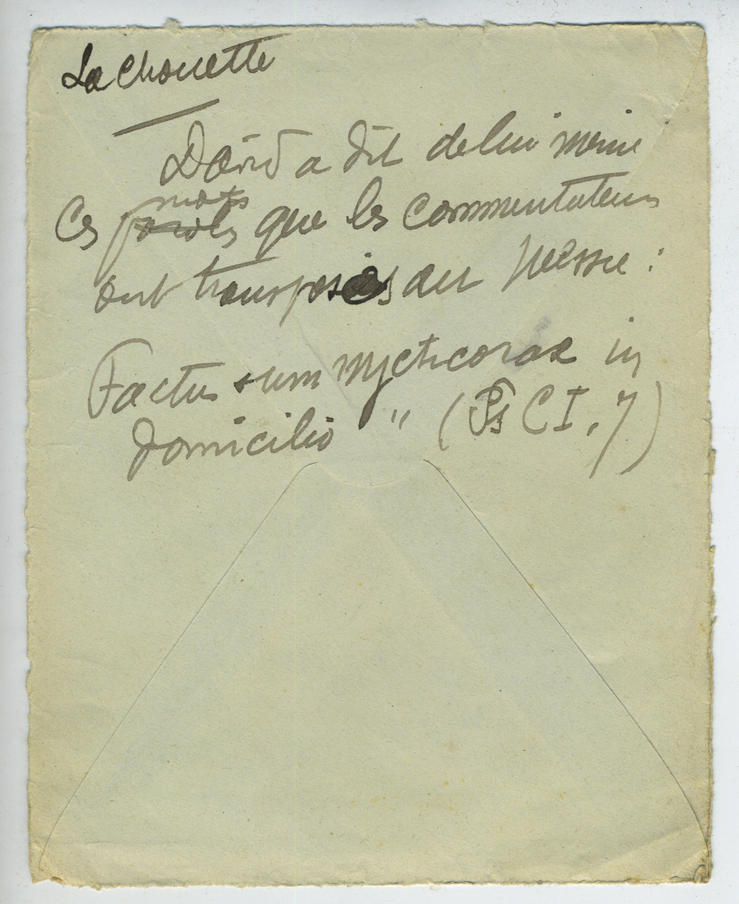 La Chouette
David a dit de lui même
Ces mots que les commentateurs
ont transposés au Messie :
Factus sum nycticorax in
domicilio " (Ps CI, 7)